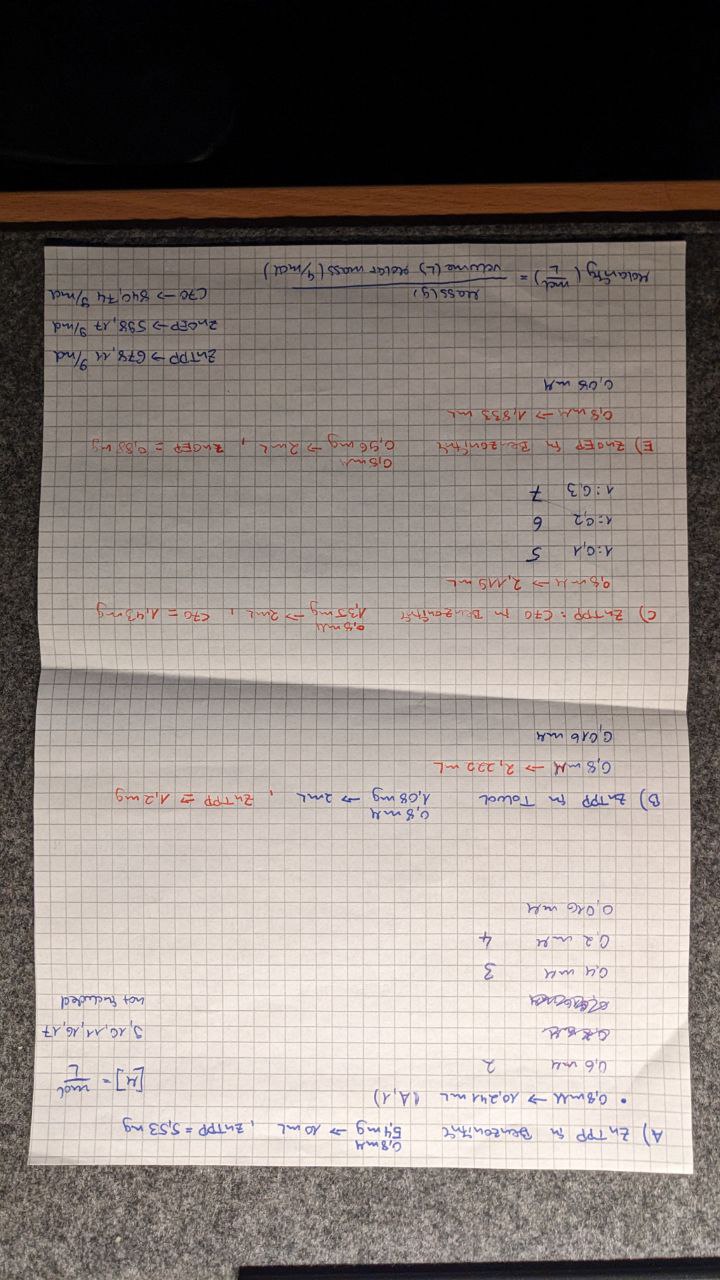 A) ZnTPP in Benzonitril 0,8mM 5,4mg → 10mL , ZnTPP = 5,53 mg
• 0,8mM → 10,241 mL (A,1)
[M] = mol/L
0,6 mM 2
9,10,11,16,17
not included
0,4 mM 3
0,2 mM 4
0,016 mM
B) ZnTPP in Toluol 0,8mM 1,08mg → 2mL , ZnTPP = 1,2mg
0,8mM → 2,222 mL
0,016 mM
C) ZnTPP : C70 in Benzonitril 0,8mM 1,35mg → 2mL , C70 = 1,43mg
0,8mM → 2,119 mL
1:0,1 5
1:0,2 6
1:0,3 7
E) ZnOEP in Benzonitril 0,8mM 0,96mg → 2mL , ZnOEP = 0,88mg
0,8mM → 1,833 mL
0,08 mM
ZnTPP → 678,11 g/mol
ZnOEP → 598,17 g/mol
C70 → 840,74 g/mol
Molarity (mol/L) = Mass(g) / volume(L) Molar mass(g/mol)